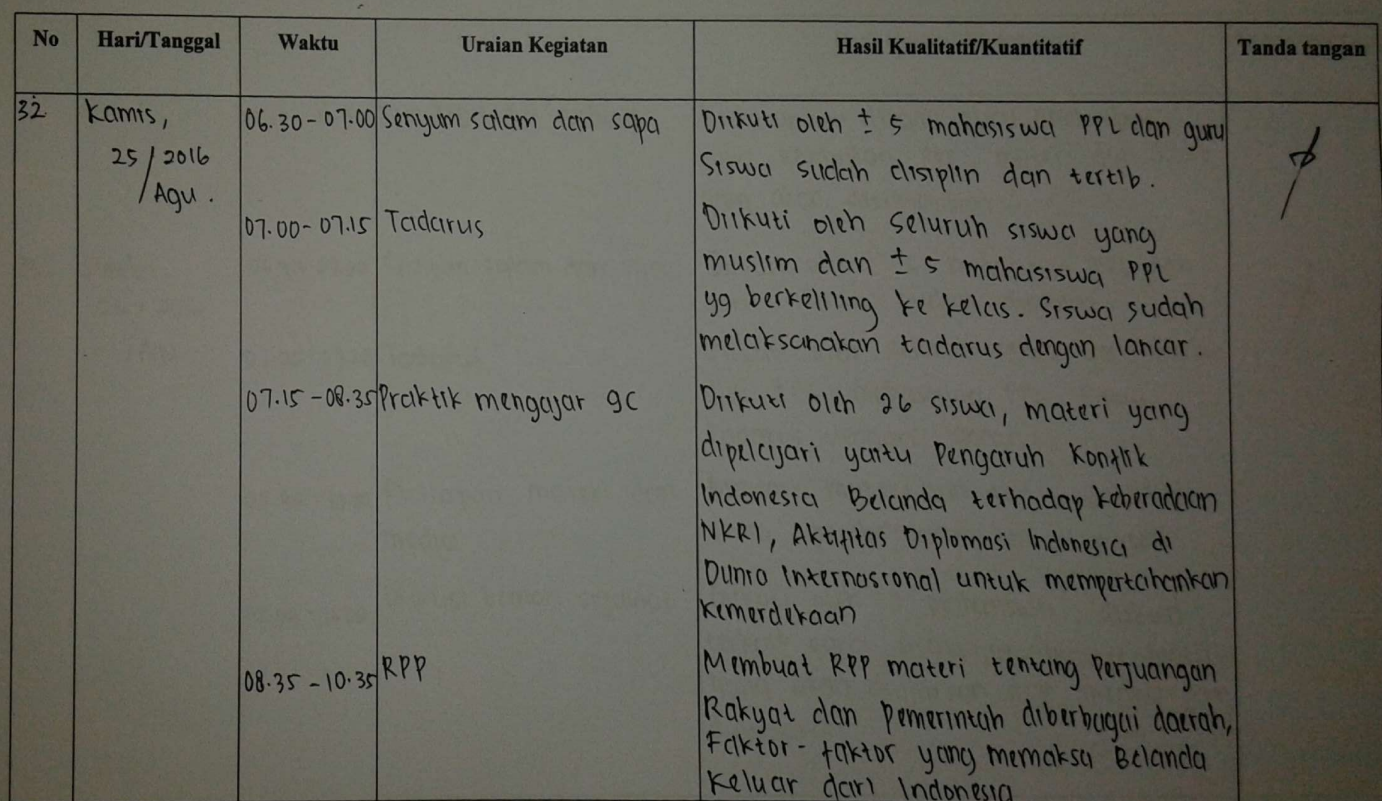 No Hari/Tanggal Waktu Uraian Kegiatan Hasil Kualitatif/Kuantitatif Tanda tangan
32 Kamis, 06.30 - 07.00 Senyum salam dan sapa Diikuti oleh ± 5 mahasiswa PPL dan guru
25 / 2016 Siswa sudah disiplin dan tertib.
/ Agu.
07.00 - 07.15 Tadarus Diikuti oleh seluruh siswa yang
muslim dan ± 5 mahasiswa PPL
yg berkeliling ke kelas. Siswa sudah
melaksanakan tadarus dengan lancar.
07.15 - 08.35 Praktik mengajar 9C Diikuti oleh 26 siswa, materi yang
dipelajari yaitu Pengaruh Konflik
Indonesia Belanda terhadap keberadaan
NKRI, Aktifitas Diplomasi Indonesia di
Dunia Internasional untuk mempertahankan
kemerdekaan
08.35 - 10.35 RPP Membuat RPP materi tentang Perjuangan
Rakyat dan Pemerintah diberbagai daerah,
Faktor - faktor yang memaksa Belanda
Keluar dari Indonesia